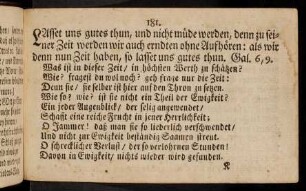 181.
LAsset uns gutes thun, und nicht müde werden, denn zu sei-
ner Zeit werden wir auch erndten ohne Aufhören: als wir
denn nun Zeit haben, so lasset uns gutes thun. Gal. 6, 9.
Was ist in dieser Zeit / in höchsten Werth zu schätzen?
Wie? fragest du wol noch? geh frage nur die Zeit:
Denn sie / sie selber ist hier auf den Thron zu setzen.
Wie so? wie? ist sie nicht ein Theil der Ewigkeit?
Ein jeder Augenblick / der selig angewendet /
Schafft eine reiche Frucht in jener Herrlichkeit;
O Jammer! daß man sie so liederlich verschwendet /
Und nicht zur Ewigkeit beständig Saamen streut.
O schrecklicher Verlust / der so verlohrnen Stunden!
Davon in Ewigkeit / nichts wieder wird gefunden.
R